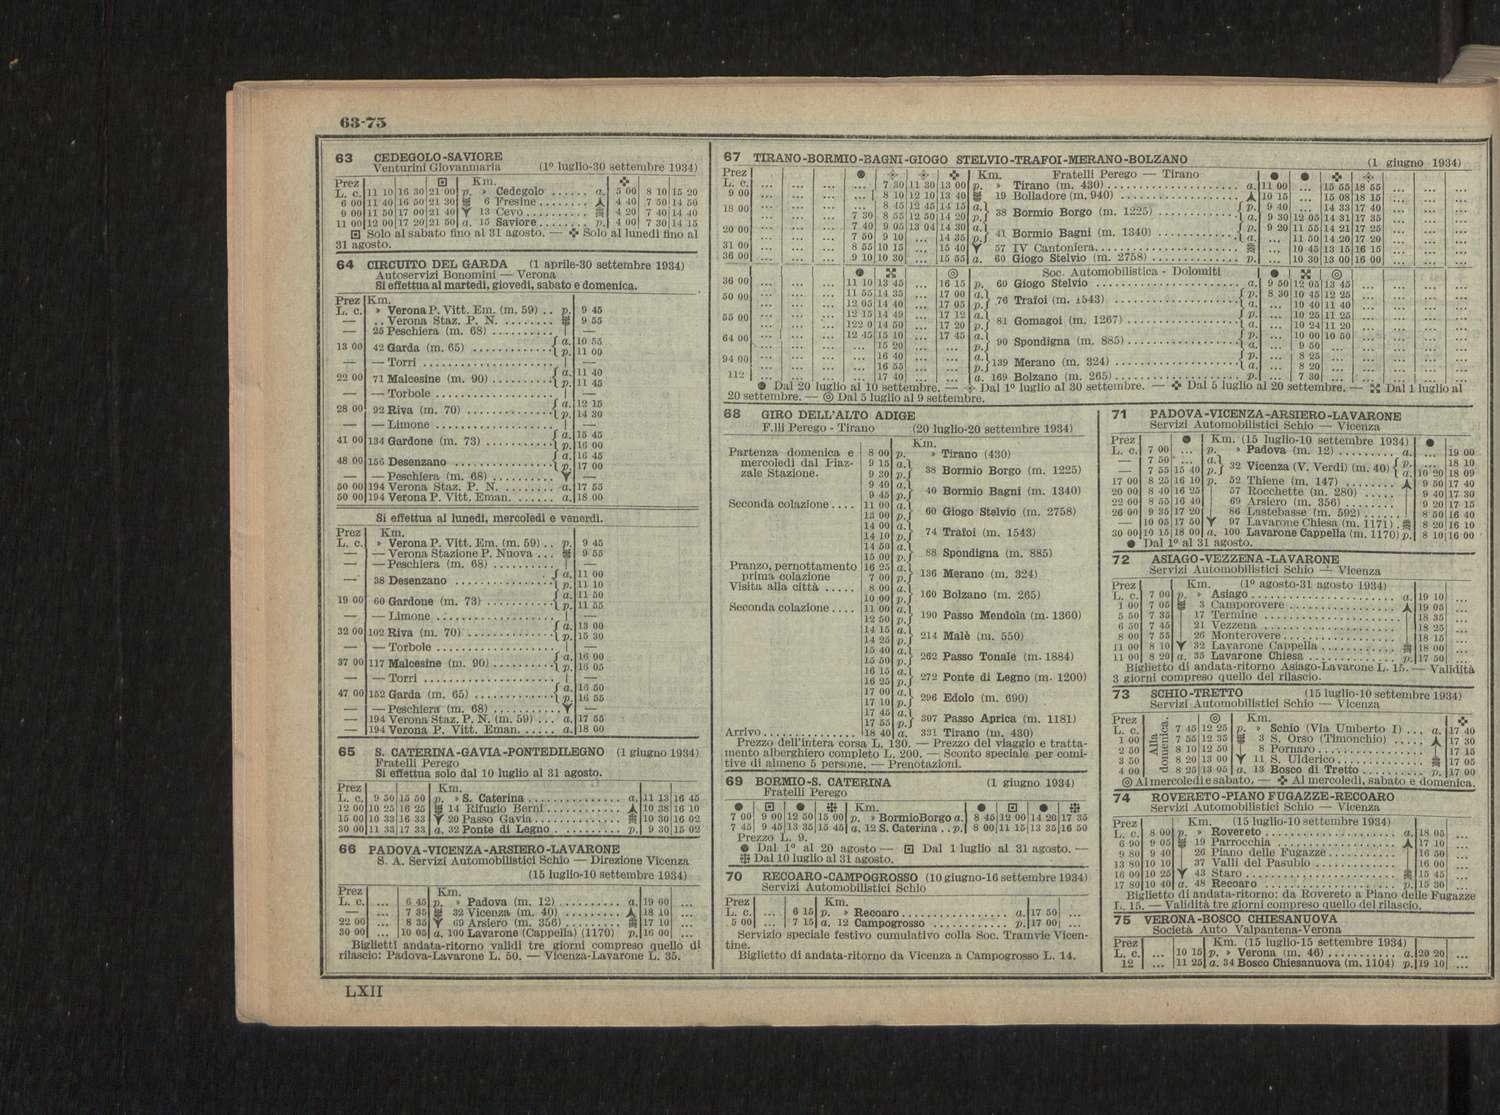 63-75
63 CEDEGOLO-SAVIORE
Venturini Giovanmaria (1º luglio-30 settembre 1934)
Prez Km.
L. c. 11 10 16 30 21 00 p. » Cedegolo ...... a. 5 00 8 10 15 20
6 00 11 40 16 50 21 30 6 Fresine ........ 4 40 7 50 14 50
9 00 11 50 17 00 21 40 13 Cevo .......... 4 20 7 40 14 40
11 00 12 00 17 20 21 50 a. 15 Saviore ........ p. 4 00 7 30 14 15
Solo al sabato fino al 31 agosto. — Solo al lunedì fino al
31 agosto.
64 CIRCUITO DEL GARDA (1 aprile-30 settembre 1934)
Autoservizi Bonomini — Verona
Si effettua al martedì, giovedì, sabato e domenica.
Prez Km.
L. c. » Verona P. Vitt. Em. (m. 59) .. p. 9 45
— .. Verona Staz. P. N. ........ 9 55
— 25 Peschiera (m. 68) .......... —
13 00 42 Garda (m. 65) ............ a. 10 55
p. 11 00
— — Torri .................... —
22 00 71 Malcesine (m. 90) .......... a. 11 40
p. 11 45
— — Torbole .................. —
28 00 92 Riva (m. 70) ............. a. 12 15
p. 14 30
— — Limone ................... —
41 00 134 Gardone (m. 73) .......... a. 15 45
p. 16 00
48 00 156 Desenzano ............... a. 16 45
p. 17 00
— — Peschiera (m. 68) .......... —
50 00 194 Verona Staz. P. N. ........ a. 17 55
50 00 194 Verona P. Vitt. Eman. ...... a. 18 00
Si effettua al lunedì, mercoledì e venerdì.
Prez Km.
L. c. » Verona P. Vitt. Em. (m. 59) .. p. 9 45
— — Verona Stazione P. Nuova ... 9 55
— — Peschiera (m. 68) .......... —
— 38 Desenzano ............... a. 11 00
p. 11 10
19 00 60 Gardone (m. 73) .......... a. 11 50
p. 11 55
— — Limone ................... —
32 00 102 Riva (m. 70) ............. a. 13 00
p. 15 30
— — Torbole .................. —
37 00 117 Malcesine (m. 90) .......... a. 16 00
p. 16 05
— — Torri .................... —
47 00 152 Garda (m. 65) ............ a. 16 50
p. 16 55
— — Peschiera (m. 68) .......... —
— 194 Verona Staz. P. N. (m. 59) ... a. 17 55
— 194 Verona P. Vitt. Eman. ...... a. 18 00
65 S. CATERINA-GAVIA-PONTEDILEGNO (1 giugno 1934)
Fratelli Perego
Si effettua solo dal 10 luglio al 31 agosto.
Prez Km.
L. c. 9 50 15 50 p. » S. Caterina .............. a. 11 13 16 45
12 00 10 25 16 25 14 Rifugio Berni ........... 10 38 16 10
15 00 10 33 16 33 20 Passo Gavia ............. 10 30 16 02
30 00 11 33 17 33 a. 32 Ponte di Legno .......... p. 9 30 15 02
66 PADOVA-VICENZA-ARSIERO-LAVARONE
S. A. Servizi Automobilistici Schio — Direzione Vicenza
(15 luglio-10 settembre 1934)
Prez Km.
L. c. ... 6 45 p. » Padova (m. 12) .......... a. 19 00 ...
— ... 7 35 32 Vicenza (m. 40) ......... 18 10 ...
22 00 ... 8 35 69 Arsiero (m. 356) ......... 17 10 ...
30 00 ... 10 05 a. 100 Lavarone (Cappella) (1170) p. 16 00 ...
Biglietti andata-ritorno validi tre giorni compreso quello di
rilascio: Padova-Lavarone L. 50. — Vicenza-Lavarone L. 35.
LXII
67 TIRANO-BORMIO-BAGNI-GIOGO STELVIO-TRAFOI-MERANO-BOLZANO (1 giugno 1934)
Prez Km. Fratelli Perego — Tirano
L. c. ... ... ... ... 7 30 11 30 13 00 p. » Tirano (m. 430) ........ a. 11 00 ... 15 55 18 55 ... ... ...
9 00 ... ... ... ... 8 10 12 10 13 40 19 Bolladore (m. 940) ........ 10 15 ... 15 08 18 15 ... ... ...
18 00 ... ... ... ... 8 45 12 45 14 15 a. 38 Bormio Borgo (m. 1225) ........ p. 9 40 ... 14 33 17 40 ... ... ...
... ... ... 7 30 8 55 12 50 14 20 p. a. 9 30 12 05 14 31 17 35 ... ... ...
20 00 ... ... ... 7 40 9 05 13 04 14 30 a. 41 Bormio Bagni (m. 1340) ........ p. 9 20 11 55 14 21 17 25 ... ... ...
... ... ... 7 50 9 10 ... 14 35 p. a. ... 11 50 14 20 17 20 ... ... ...
31 00 ... ... ... 8 55 10 15 ... 15 40 57 IV Cantoniera ........ ... 10 45 13 15 16 15 ... ... ...
36 00 ... ... ... 9 10 10 30 ... 15 55 a. 60 Giogo Stelvio (m. 2758) ........ p. ... 10 30 13 00 16 00 ... ... ...
Soc. Automobilistica - Dolomiti
36 00 ... ... ... 11 10 13 45 ... 16 15 p. 60 Giogo Stelvio ........ a. 9 50 12 05 13 45 ... ... ... ...
50 00 ... ... ... 11 55 14 35 ... 17 00 a. 76 Trafoi (m. 1543) ........ p. 8 30 10 45 12 25 ... ... ... ...
... ... ... 12 05 14 40 ... 17 05 p. a. ... 10 40 11 40 ... ... ... ...
55 00 ... ... ... 12 15 14 49 ... 17 12 a. 81 Gomagoi (m. 1267) ........ p. ... 10 25 11 25 ... ... ... ...
... ... ... 122 0 14 50 ... 17 20 p. a. ... 10 24 11 20 ... ... ... ...
64 00 ... ... ... 12 45 15 10 ... 17 45 a. 90 Spondigna (m. 885) ........ p. ... 10 00 10 50 ... ... ... ...
... ... ... ... 15 20 ... ... p. a. ... 9 50 ... ... ... ... ...
94 00 ... ... ... ... 16 40 ... ... a. 139 Merano (m. 324) ........ p. ... 8 25 ... ... ... ... ...
... ... ... ... 16 55 ... ... p. a. ... 8 20 ... ... ... ... ...
112 ... ... ... ... 17 40 ... ... a. 169 Bolzano (m. 265) ........ p. ... 7 30 ... ... ... ... ...
● Dal 20 luglio al 10 settembre. — Dal 1º luglio al 30 settembre. — Dal 5 luglio al 20 settembre. — Dal 1 luglio al
20 settembre. — ◎ Dal 5 luglio al 9 settembre.
68 GIRO DELL'ALTO ADIGE
F.lli Perego - Tirano (20 luglio-20 settembre 1934)
Km.
Partenza domenica e 8 00 p. » Tirano (430)
mercoledì dal Piaz- 9 15 a. 38 Bormio Borgo (m. 1225)
zale Stazione. 9 30 p.
9 40 a. 40 Bormio Bagni (m. 1340)
9 45 p.
Seconda colazione .... 11 00 a. 60 Giogo Stelvio (m. 2758)
13 00 p.
14 00 a. 74 Trafoi (m. 1543)
14 10 p.
14 50 a. 88 Spondigna (m. 885)
15 00 p.
Pranzo, pernottamento 16 25 a. 136 Merano (m. 324)
prima colazione 7 00 p.
Visita alla città ..... 8 00 a. 160 Bolzano (m. 265)
10 00 p.
Seconda colazione .... 11 00 a. 190 Passo Mendola (m. 1360)
12 50 p.
14 15 a. 214 Malè (m. 550)
14 25 p.
15 40 a. 262 Passo Tonale (m. 1884)
15 50 p.
16 15 a. 272 Ponte di Legno (m. 1200)
16 25 p.
17 00 a. 296 Edolo (m. 690)
17 10 p.
17 45 a. 307 Passo Aprica (m. 1181)
17 55 p.
Arrivo ............. 18 40 a. 331 Tirano (m. 430)
Prezzo dell'intera corsa L. 130. — Prezzo del viaggio e tratta-
mento alberghiero completo L. 200. — Sconto speciale per comi-
tive di almeno 5 persone. — Prenotazioni.
69 BORMIO-S. CATERINA (1 giugno 1934)
Fratelli Perego
Km.
7 00 9 00 12 50 15 00 p. » Bormio Borgo a. 8 45 12 00 14 20 17 35
7 45 9 45 13 35 15 45 a. 12 S. Caterina .. p. 8 00 11 15 13 35 16 50
Prezzo L. 9.
● Dal 1º al 20 agosto — Dal 1 luglio al 31 agosto. —
Dal 10 luglio al 31 agosto.
70 RECOARO-CAMPOGROSSO (10 giugno-16 settembre 1934)
Servizi Automobilistici Schio
Prez Km.
L. c. ... 6 15 p. » Recoaro .............. a. 17 50 ...
5 00 ... 7 15 a. 12 Campogrosso ........... p. 17 00 ...
Servizio speciale festivo cumulativo colla Soc. Tramvie Vicen-
tine.
Biglietto di andata-ritorno da Vicenza a Campogrosso L. 14.
71 PADOVA-VICENZA-ARSIERO-LAVARONE
Servizi Automobilistici Schio — Vicenza
Prez ● Km. (15 luglio-10 settembre 1934) ●
L. c. 7 00 ... p. » Padova (m. 12) .......... a. ... 19 00
— 7 50 ... a. 32 Vicenza (V. Verdi) (m. 40) p. ... 18 10
— 7 55 15 40 p. a. 10 20 18 09
17 00 8 25 16 10 p. 52 Thiene (m. 147) ........ 9 50 17 40
20 00 8 40 16 25 57 Rocchette (m. 280) ..... 9 40 17 30
22 00 8 55 16 40 69 Arsiero (m. 356) ........ 9 20 17 15
26 00 9 35 17 20 86 Lastebasse (m. 592) ..... 8 50 16 40
— 10 05 17 50 97 Lavarone Chiesa (m. 1171) . 8 20 16 10
30 00 10 15 18 00 a. 100 Lavarone Cappella (m. 1170) p. 8 10 16 00
● Dal 1º al 31 agosto.
72 ASIAGO-VEZZENA-LAVARONE
Servizi Automobilistici Schio — Vicenza
Prez Km. (1º agosto-31 agosto 1934)
L. c. 7 00 p. » Asiago ................ a. 19 10 ...
1 00 7 05 3 Camporovere ............ 19 05 ...
5 50 7 35 17 Termine ............... 18 35 ...
6 50 7 45 21 Vezzena ............... 18 25 ...
8 00 7 55 26 Monterovere ............ 18 15 ...
11 00 8 10 32 Lavarone Cappella ....... 18 00 ...
11 00 8 20 a. 35 Lavarone Chiesa ......... p. 17 50 ...
Biglietto di andata-ritorno Asiago-Lavarone L. 15. — Validità
3 giorni compreso quello del rilascio.
73 SCHIO-TRETTO (15 luglio-10 settembre 1934)
Servizi Automobilistici Schio — Vicenza
Prez Alla domenica. ◎ Km.
L. c. 7 45 12 25 p. » Schio (Via Umberto I) ... a. 17 40
1 00 7 55 12 35 3 S. Orso (Timonchio) ..... 17 30
2 50 8 10 12 50 8 Pornaro ............... 17 15
3 50 8 20 13 00 11 S. Ulderico ............ 17 05
4 00 8 25 13 05 a. 13 Bosco di Tretto ......... p. 17 00
◎ Al mercoledì e sabato. — Al mercoledì, sabato e domenica.
74 ROVERETO-PIANO FUGAZZE-RECOARO
Servizi Automobilistici Schio — Vicenza
Prez Km. (15 luglio-10 settembre 1934)
L. c. 8 00 p. » Rovereto .............. a. 18 05 ...
6 90 9 05 19 Parrocchia ............ 17 10 ...
9 80 9 40 26 Piano delle Fugazze ..... 16 50 ...
13 80 10 10 37 Valli del Pasubio ....... 16 00 ...
16 00 10 25 43 Staro ................. 15 45 ...
17 80 10 40 a. 48 Recoaro ............... p. 15 30 ...
Biglietto di andata-ritorno: da Rovereto a Piano delle Fugazze
L. 15. — Validità tre giorni compreso quello del rilascio.
75 VERONA-BOSCO CHIESANUOVA
Società Auto Valpantena-Verona
Prez Km. (15 luglio-15 settembre 1934)
L. c. ... 10 15 p. » Verona (m. 46) .......... a. 20 20 ...
12 ... 11 25 a. 34 Bosco Chiesanuova (m. 1104) p. 19 10 ...